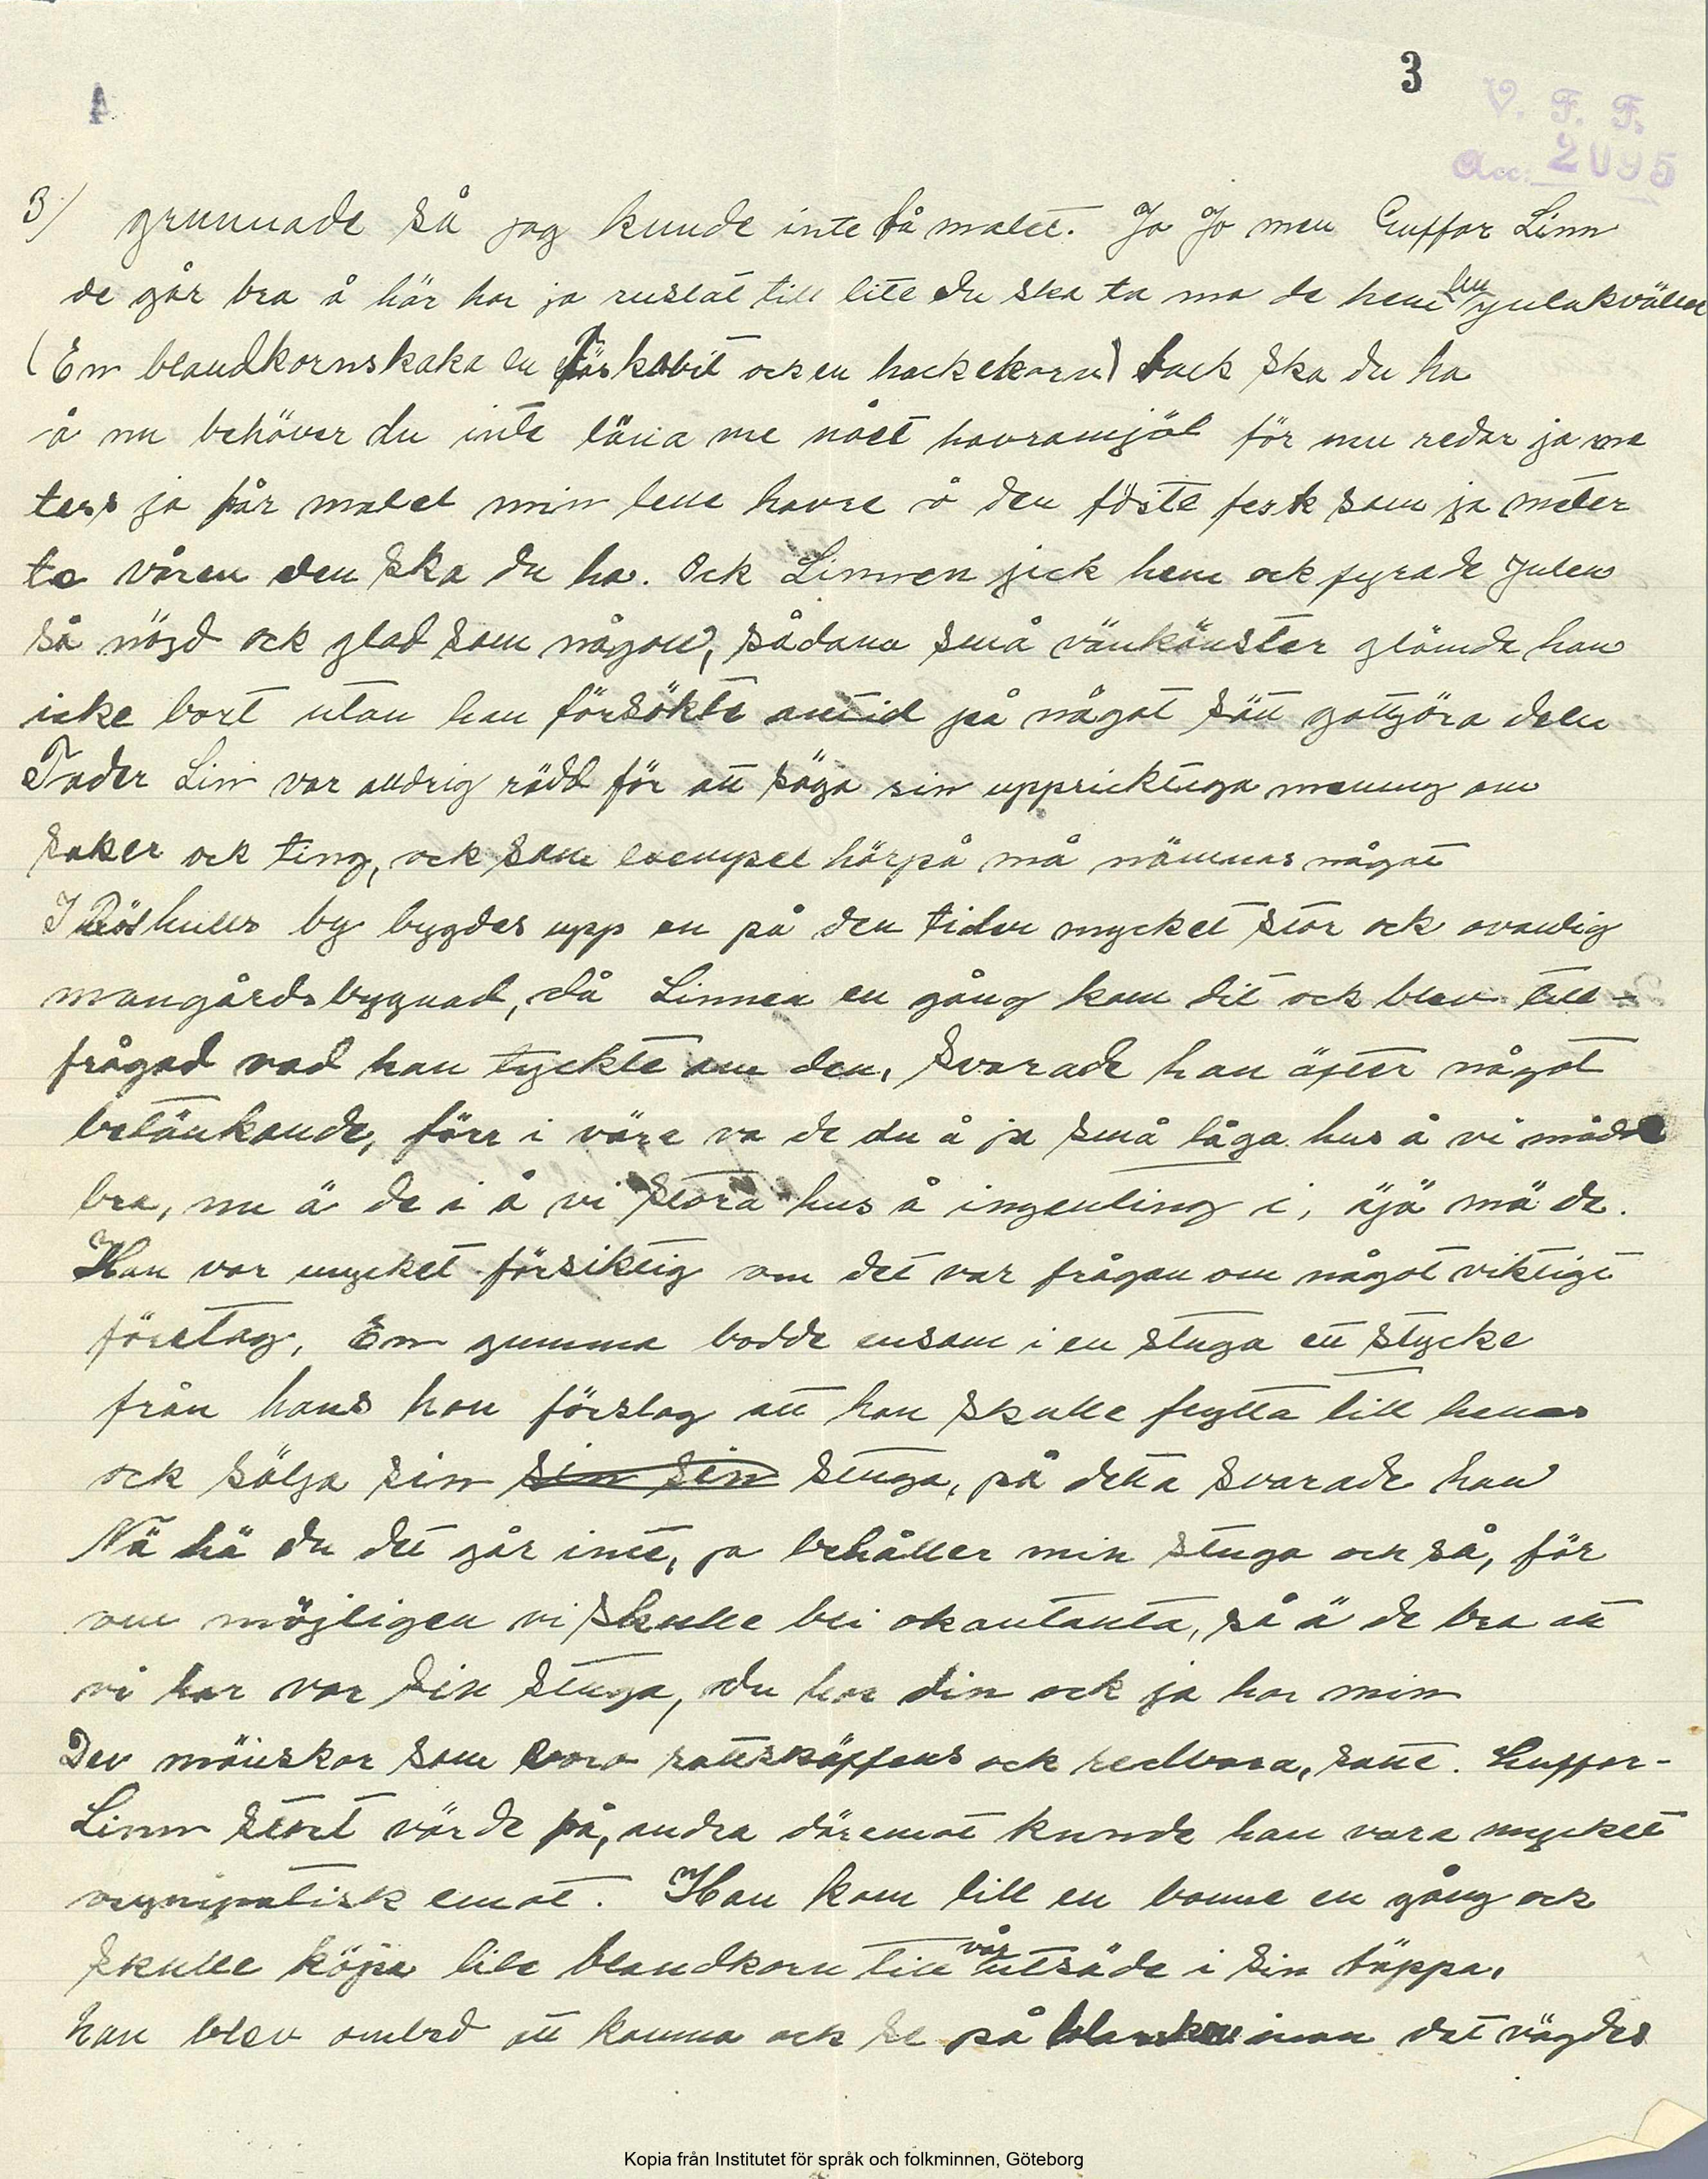 3
V. F. F.
Acc. 2095
3/ grunnade så jag kunde inte få malet. Jo Jo men Guffar Linn
de går bra å här har ja rustat till lite du ska ta ma de hem nu julakvällen
(En blandkornskaka en fläskabit ock en hackekorv) tack ska du ha
å nu behöver du inte läna me nået havramjöl för nu redar ja me
tess ja får malet min lella havre å den föste fesk som ja meter
te våren den ska du ha. Ock Linnen jick hem ock fyrade Julen
så nöjd ock glad som någon, sådana små vänkänster glömde han
icke bort utan han försökte alltid på något sätt gottjöra dem
Fader Lin var alldrig rädd för att säga sin uppricktiga mening om
saker ock ting, ock som exempel härpå må nämnas något
I hults by bygdes upp en på den tiden mycket stor ock ovanlig
mangårdsbyggnad, då Linnea en gång kom dit ock blev till-
frågad vad han tyckte om den, svarade han äfter något
betänkande, förr i väre va de du å ja små låga hus å vi mådde
bra, nu ä de i å vi stora hus å ingenting i, äjä mä de.
Han var mycket försiktig om det var frågan om något viktigt
företag, En gumma bodde ensam i en stuga ett stycke
från hans hon förslog att han skulle flytta till henes
ock sälja sin sin sin stuga, på detta svarade han
Nä hä du det går inte, ja behåller min stuga ock så, för
om möjligen vi skulle bli okantanta, så ä de bra att
vi har var sin stuga, du har din ock ja har min
Dev mäniskor som voro rättskäffens ock redbara, satte Guffar-
Linn stort värde på, andra däremot kunde han vara mycket
osympatisk emot. Han kom till en bonne en gång ock
skulle köpa lite blandkorn till vår utsäde i sin täppa,
han blev ombed att komma ock se på innan det vägdes
Kopia från Institutet för språk och folkminnen, Göteborg